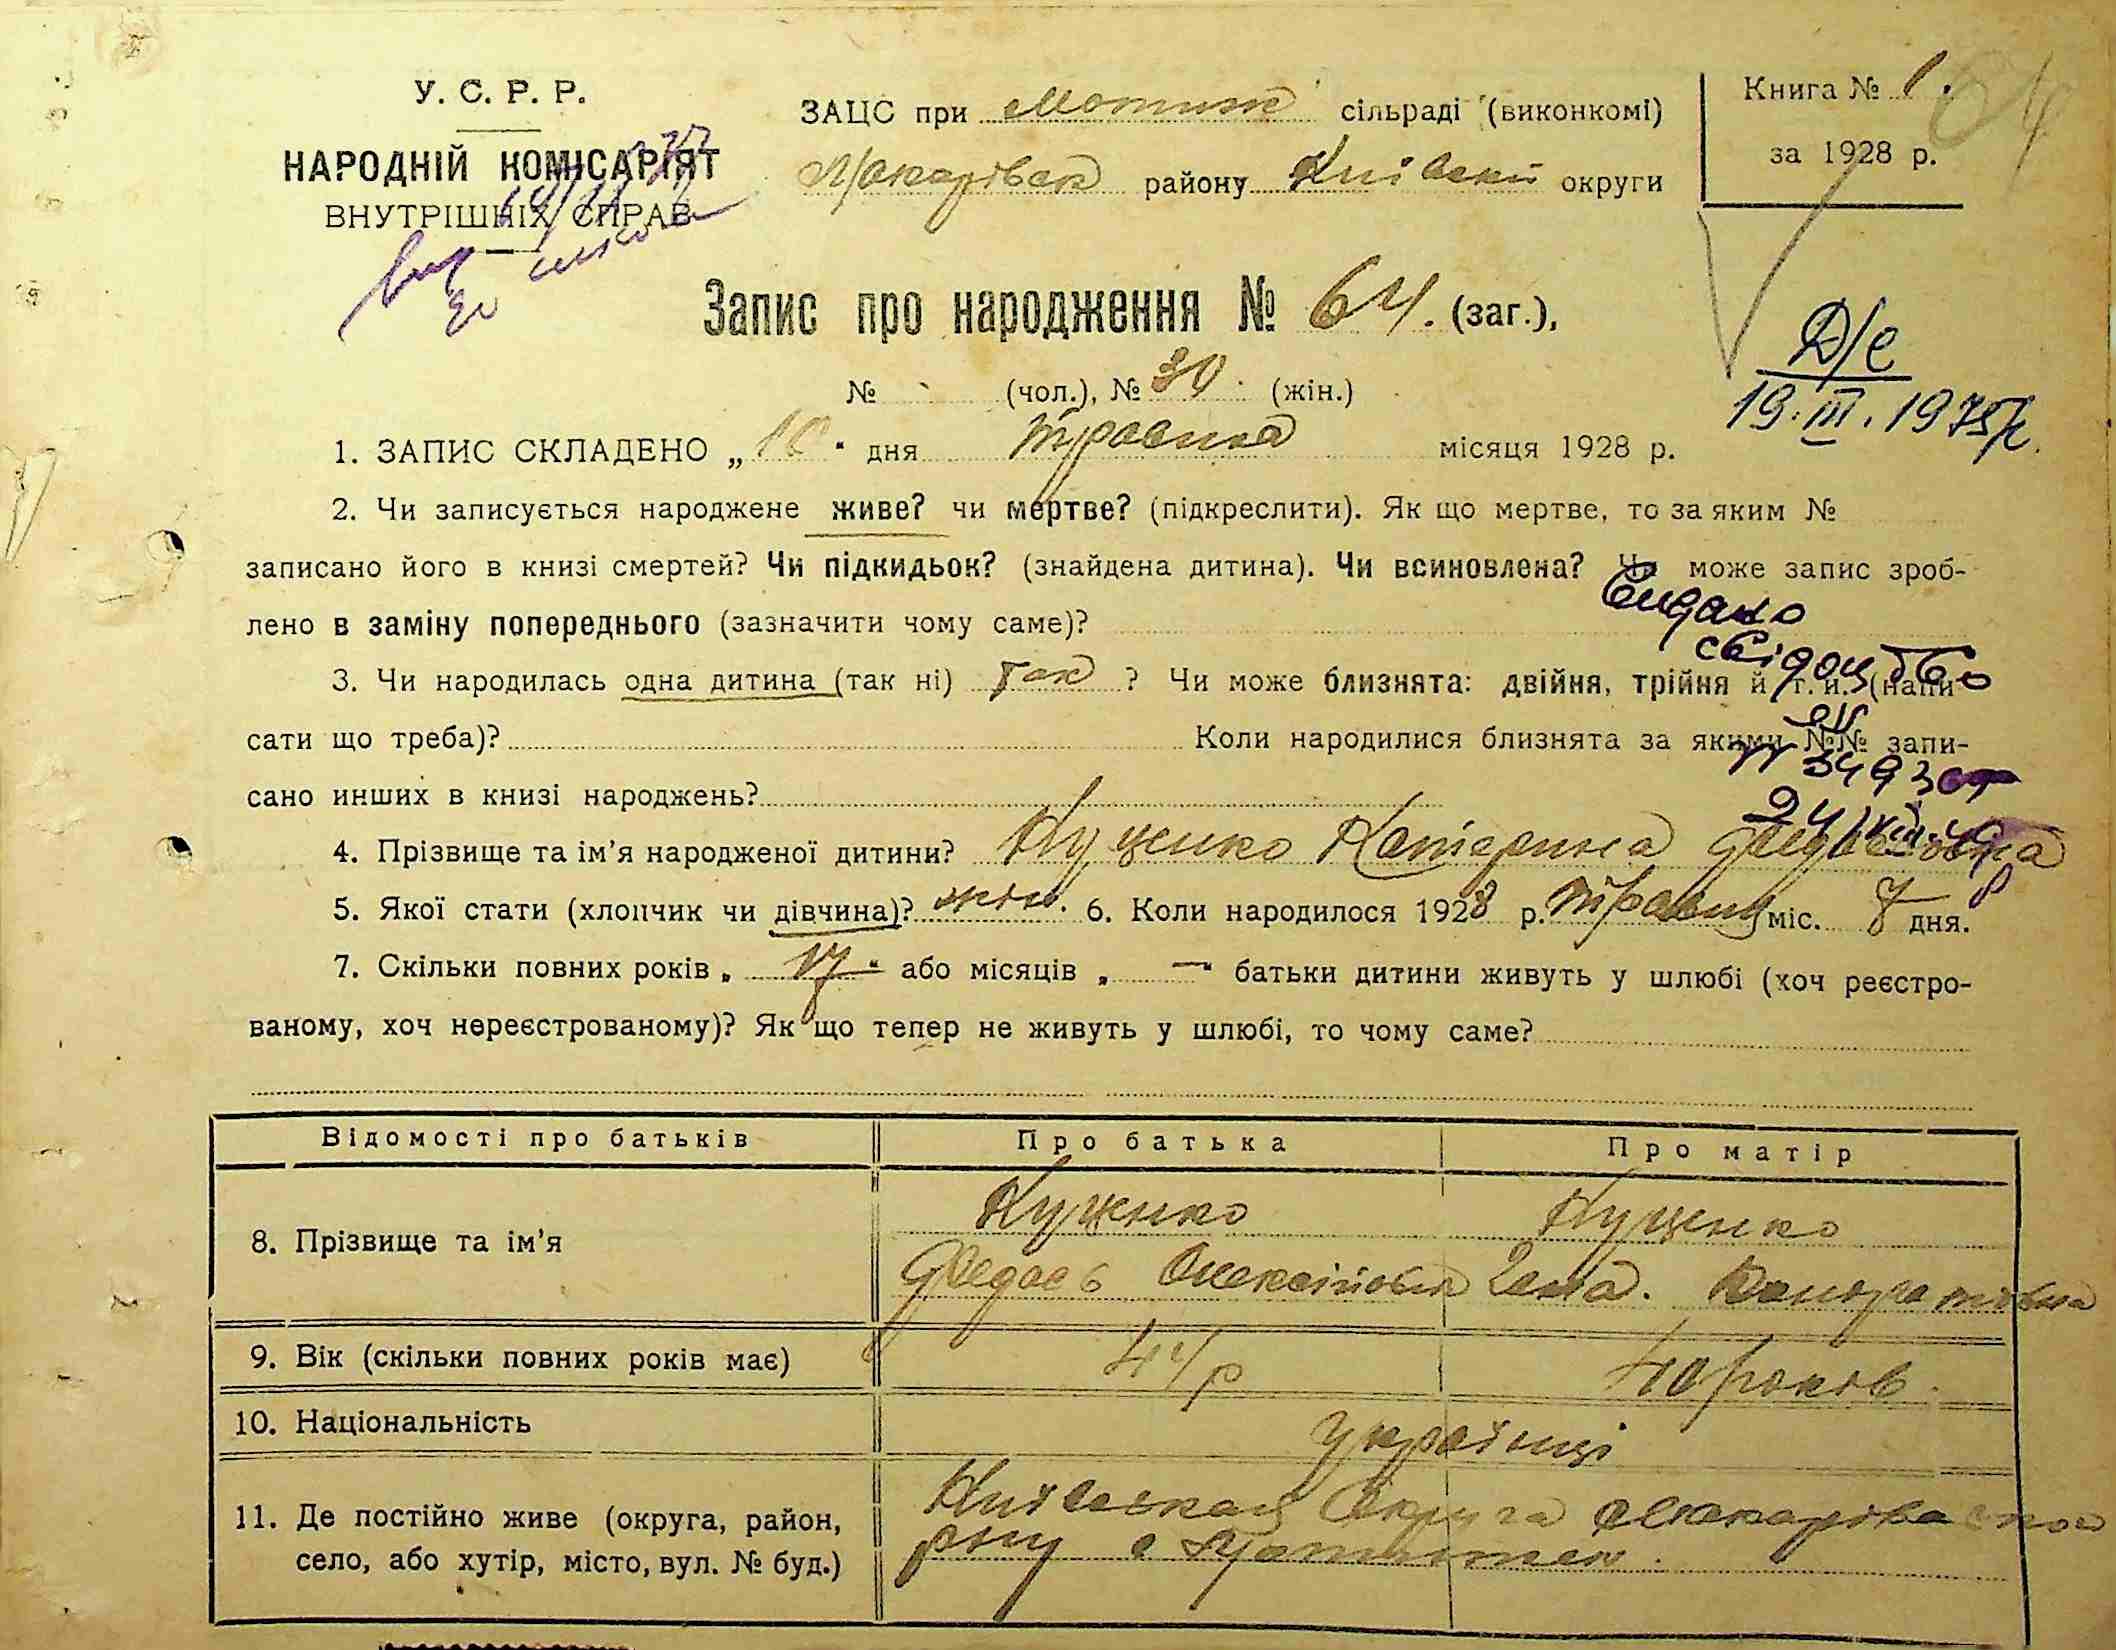 У. С. Р. Р.
НАРОДНІЙ КОМІСАРІЯТ
ВНУТРІШНІХ СПРАВ
ЗАЦС при Мотиж сільраді (виконкомі)
Макарівськ району Київськ округи
Книга № 1.
за 1928 р.
64
Запис про народження № 64. (заг.),
№ (чол.), № 30 (жін.)
Д/с
19.III.1975р.
1. ЗАПИС СКЛАДЕНО „10“ дня травня місяця 1928 р.
2. Чи записується народжене живе? чи мертве? (підкреслити). Як що мертве, то за яким №
записано його в книзі смертей? Чи підкидьок? (знайдена дитина). Чи всиновлена? Чи може запис зроб-
лено в заміну попереднього (зазначити чому саме)?
Видано
свідоцтво
3. Чи народилась одна дитина (так ні) так ? Чи може близнята: двійня, трійня й т. и. (напи-
сати що треба)? Коли народилися близнята за якими №№ запи-
сано инших в книзі народжень?
4. Прізвище та ім’я народженої дитини? Куценко Катерина
5. Якої стати (хлопчик чи дівчина)? жін. 6. Коли народилося 1928 р. травня міс. 8 дня.
7. Скільки повних років „ 17 “ або місяців „ — “ батьки дитини живуть у шлюбі (хоч реєстро-
ваному, хоч нереєстрованому)? Як що тепер не живуть у шлюбі, то чому саме?
Відомості про батьків Про батька Про матір
8. Прізвище та ім’я Куценко Куценко
Федось Олексійович
9. Вік (скільки повних років має) 40 років.
10. Національність українці
11. Де постійно живе (округа, район, Київськая Округа Макарівськой
село, або хутір, місто, вул. № буд.) рну с